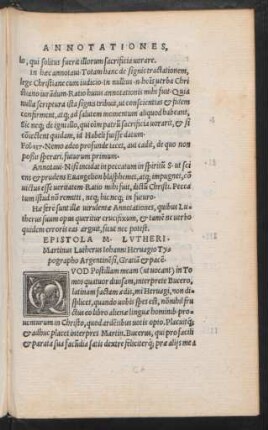 ANNOTATIONES,
lo, qui solitus fuerit illorum sacrificia uorare.
In hæc annotaui. Totam hanc de signis tractationem,
lege Christiane cum iudicio. In nullius n. hæc uerba Chri
stiano iurandum. Ratio huius annotationis mihi fuit. Quia
nulla scriptura ista signis tribuit, ut conscientias & pietatem
confirment, atq; ad salutem momentum aliquod habeant,
hic neq; de igniculo, qui com patrū sacrificia uorarit, & si
cōuenit cum quidam, id Habeli fuisse datum.
Nemo adeo profunde iacet, aut cadit, de quo non
possit sperari, futurum primum.
Annotaui. Nisi incidat in peccatum in spiritū S. ut sci
ens & prudens Euangelion blasphemet, atq; impugnet, cō
uictus esse ueritatem. Ratio mihi fuit, dissi Christi. Pecca
tum istud nō remitti, hic neq; in futuro.
Hæ ferè sunt illæ uirulentæ Annotationes, quibus Lu
therus suum opus queritur crucifixum, & tamē nec uerbo
quidem erroris eas arguit, sicut nec potest.
EPISTOLA M. LVTHERI.
Martinus Lutherus Iohanni Heruagio Ty
pographo Argentinēsi, Gratiā & pacē.
QVOD Postillam meam (ut uocant) in To
mos quatuor diuisam, interprete Bucero,
latinam factam ædis, mi Heruagi, non di
splicet, quando uobis spes est, nōnihil fru
ctus eo libro alienæ linguæ hominib. pro
uenturum in Christo, quod ardētibus uotis opto. Placuitq;
& adhuc placet interpres Martin. Bucerus, qui pro facili
& parata sua facūdia satis dextre fœliciterq; præ alijs mea